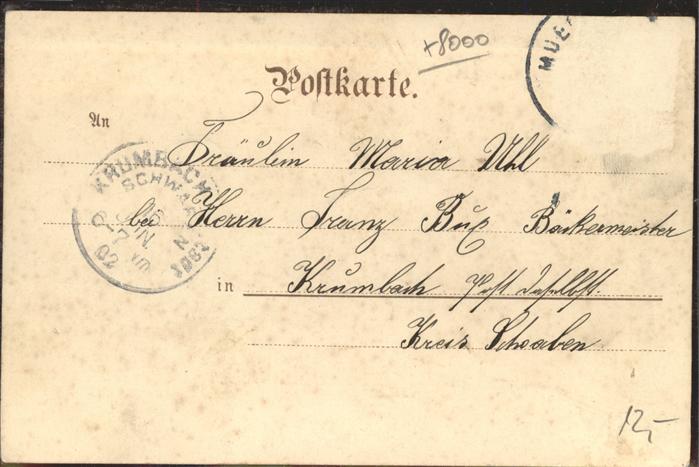 +8000
MUE
Postkarte.
An
Fräulein Maria Uhl
bei Herrn Franz Bux Bäckermeister
in Krumbach Post daselbst
Kreis Schwaben
KRUMBACH
SCHWA
JUN
02
12,-